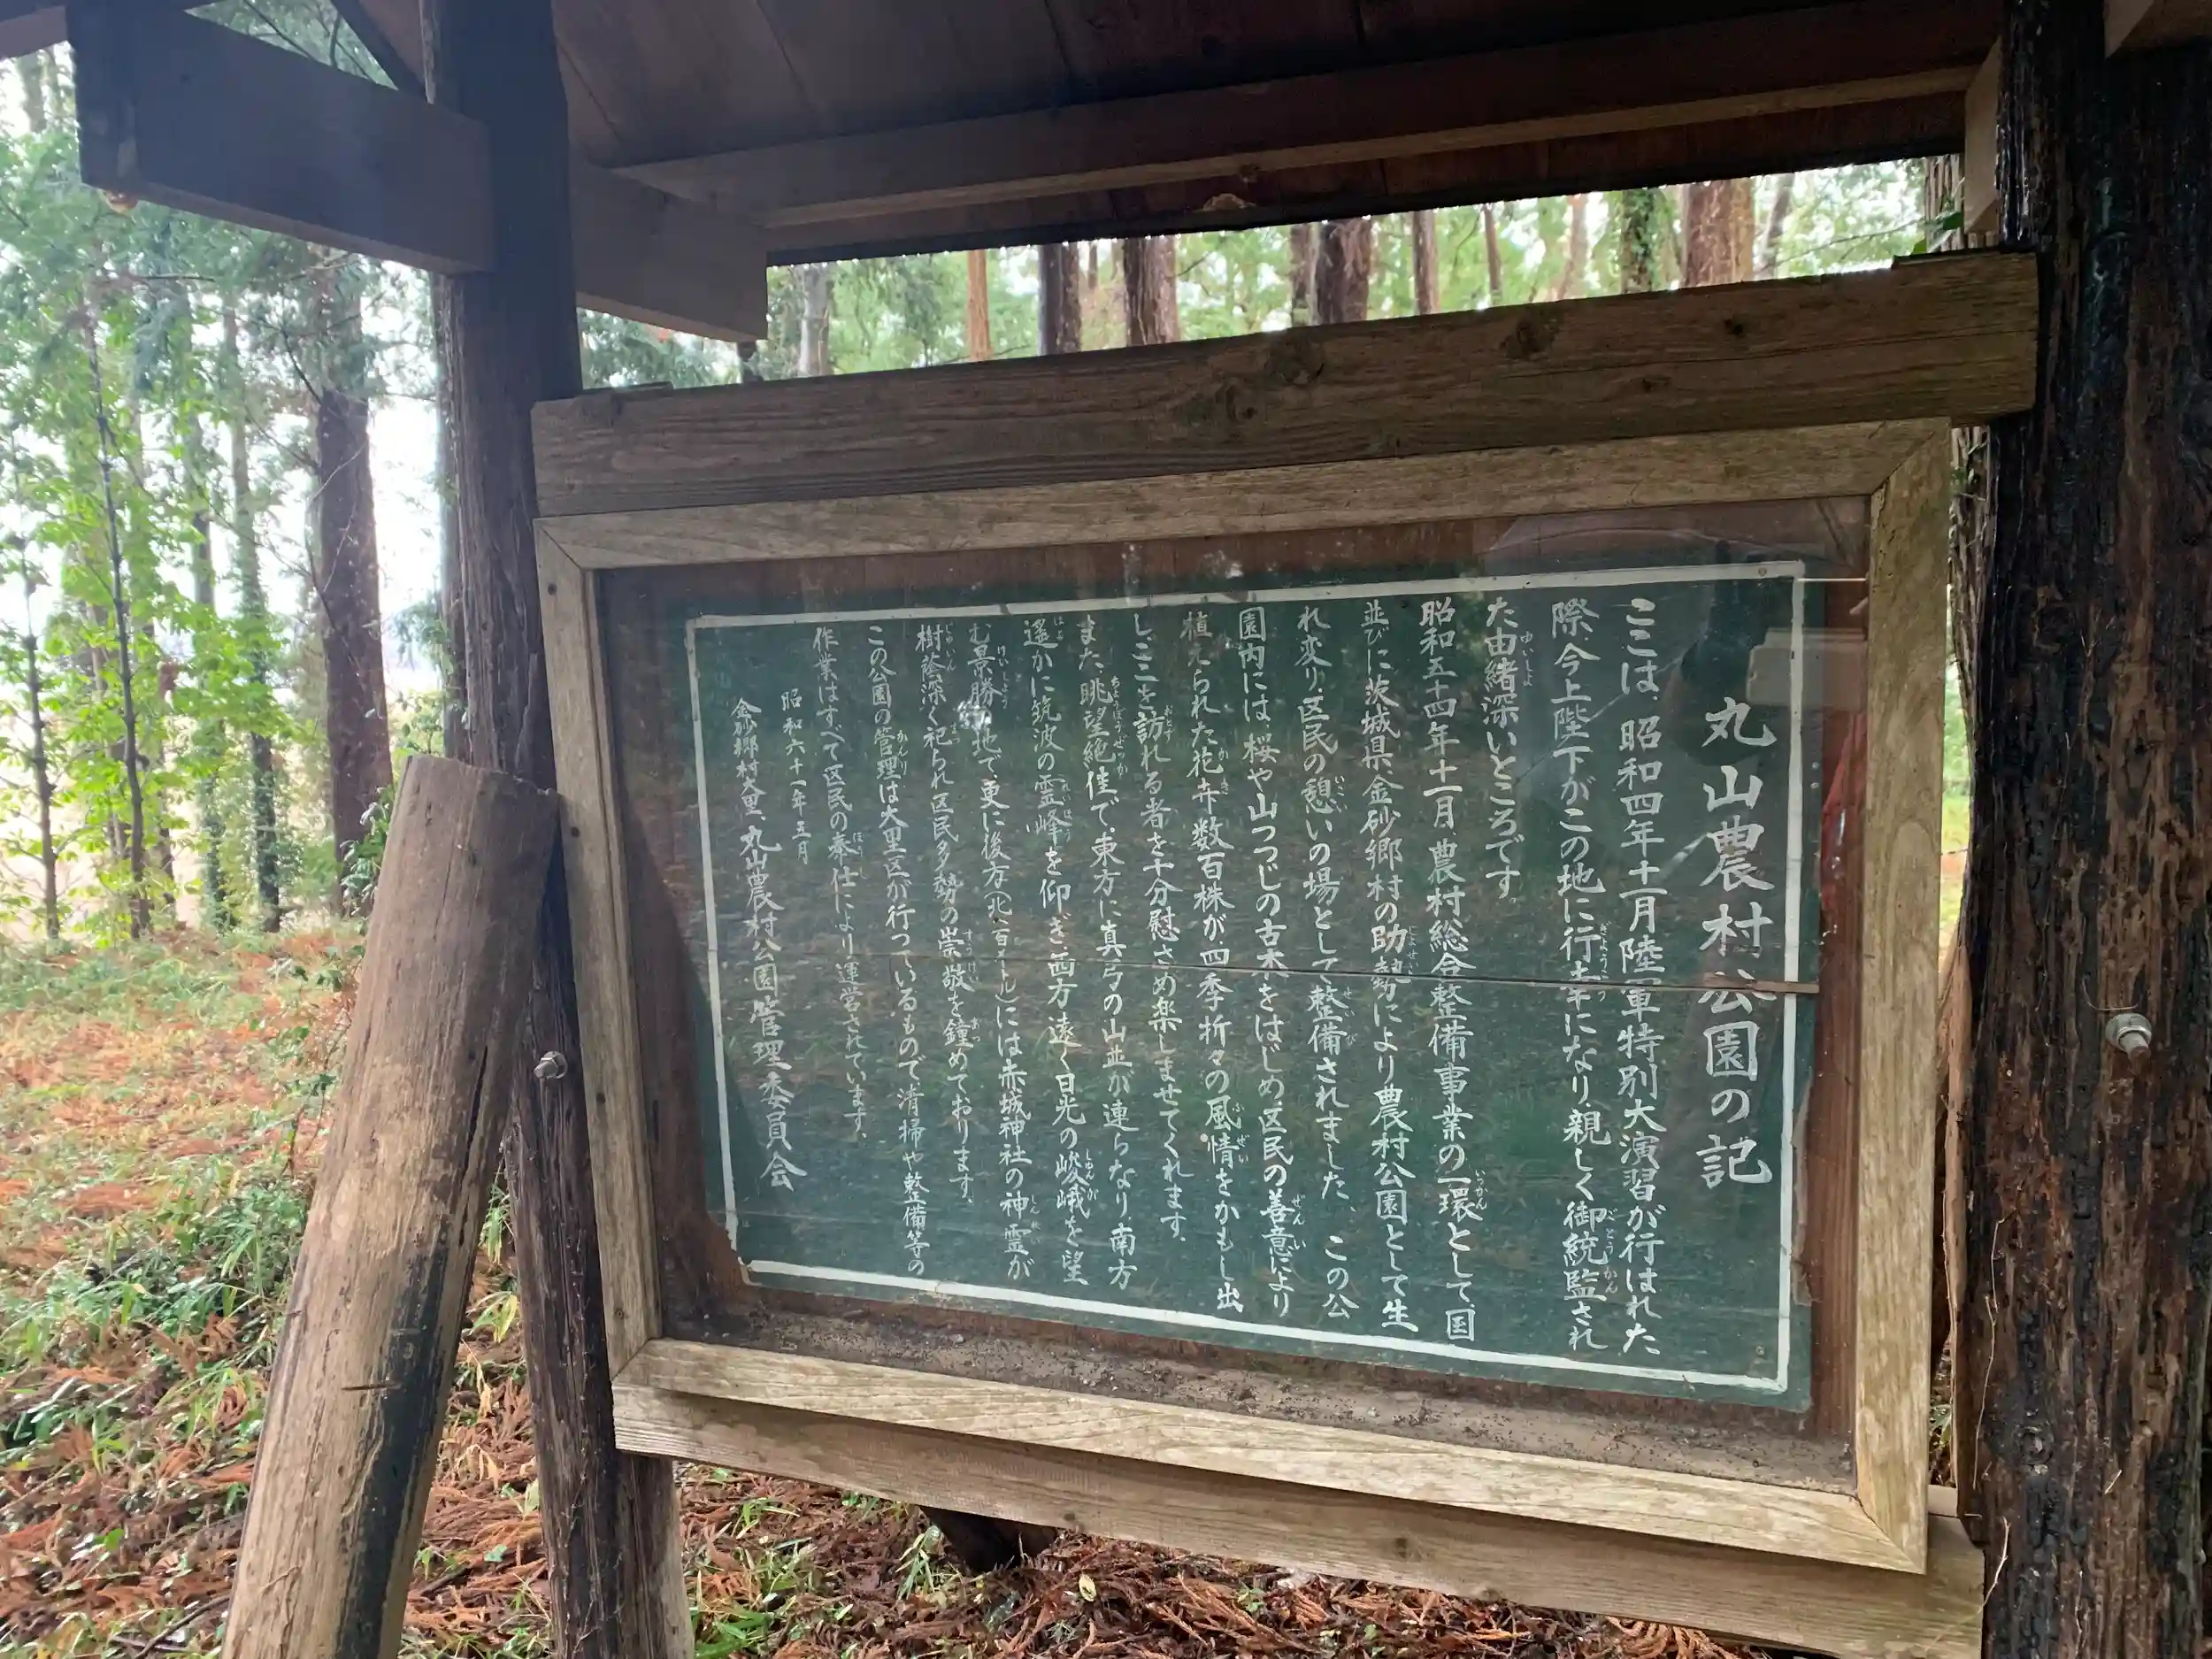 丸山農村公園の記
ここは、昭和四年十一月陸軍特別大演習が行はれた
際、今上陛下がこの地に行幸になり、親しく御統監され
た由緒深いところです。
昭和五十四年十一月農村総合整備事業の一環として、国
並びに茨城県、金砂郷村の助勢により農村公園として生
れ変り、区民の憩いの場として整備されました。この公
園内には、桜や山つつじの古木をはじめ区民の善意により
植えられた花卉数百株が四季折々の風情をかもし出
し、ここを訪れる者を十分慰さめ楽しませてくれます。
また、眺望絶佳で、東方に真弓の山並が連らなり、南方
遥かに筑波の霊峰を仰ぎ、西方遠く日光の峻峨を望
む景勝の地で、更に後方(北、百メートル)には赤城神社の神霊が
樹蔭深く祀られ区民多勢の崇敬を鐘めております。
この公園の管理は大里区が行っているもので清掃や整備等の
作業はすべて区民の奉仕により運営されています。
昭和六十一年五月
金砂郷村大里、丸山農村公園管理委員会